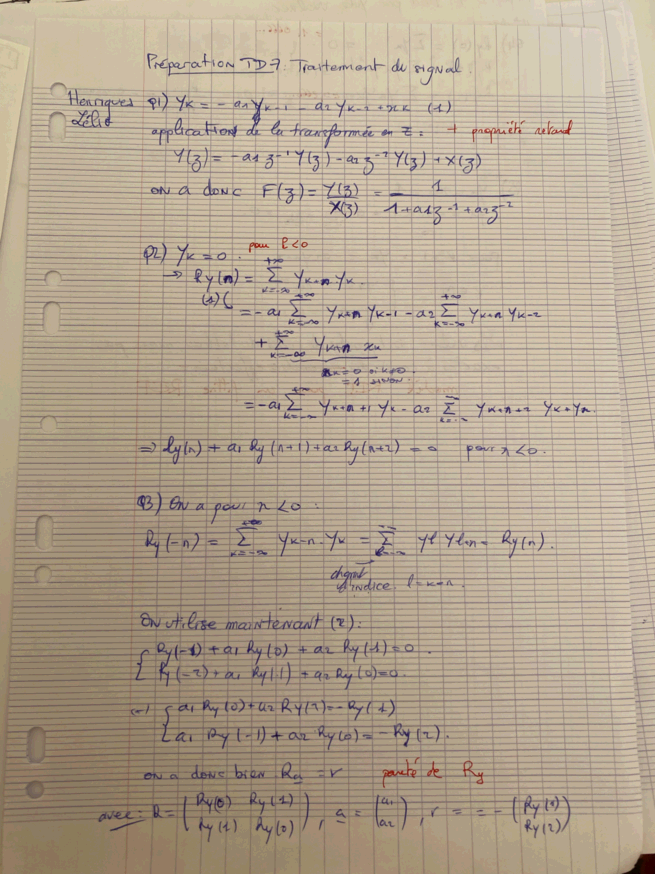 Préparation TD7: Traitement du signal
Henriques
Lélio
Q1) Yk = - a1 Yk-1 - a2 Yk-2 + xk (1)
application de la transformée en Z : + propriété retard
Y(z) = -a1 z^-1 Y(z) - a2 z^-2 Y(z) + X(z)
on a donc F(z) = Y(z)/X(z) = 1/(1 + a1 z^-1 + a2 z^-2)
Q2) Yk = 0 . pour k<0
→ Ry(n) = Σ_{k=-∞}^{+∞} Yk+n Yk.
(1) ( = - a1 Σ_{k=-∞}^{+∞} Yk+n Yk-1 - a2 Σ_{k=-∞}^{+∞} Yk+n Yk-2
+ Σ_{k=-∞}^{+∞} Yk+n xk
xk = 0 si k≠0.
= 1 sinon.
= - a1 Σ_{k=-∞}^{+∞} Yk+n+1 Yk - a2 Σ Yk+n+2 Yk + Yn.
⇒ Ry(n) + a1 Ry(n+1) + a2 Ry(n+2) = 0 pour n<0.
Q3) On a pour n<0 :
Ry(-n) = Σ_{k=-∞}^{+∞} Yk-n . Yk = Σ Yl Yl+n = Ry(n).
chgmt
d'indice. l = k-n.
On utilise maintenant (2) :
{ Ry(-1) + a1 Ry(0) + a2 Ry(1) = 0 .
Ry(-2) + a1 Ry(-1) + a2 Ry(0) = 0.
⇔ { a1 Ry(0) + a2 Ry(1) = - Ry(1)
a1 Ry(-1) + a2 Ry(0) = - Ry(2).
on a donc bien Ra = r parité de Ry
avec : R = ( Ry(0) Ry(1) ; Ry(1) Ry(0) ) , a = ( a1 ; a2 ) , r = = - ( Ry(1) ; Ry(2) )